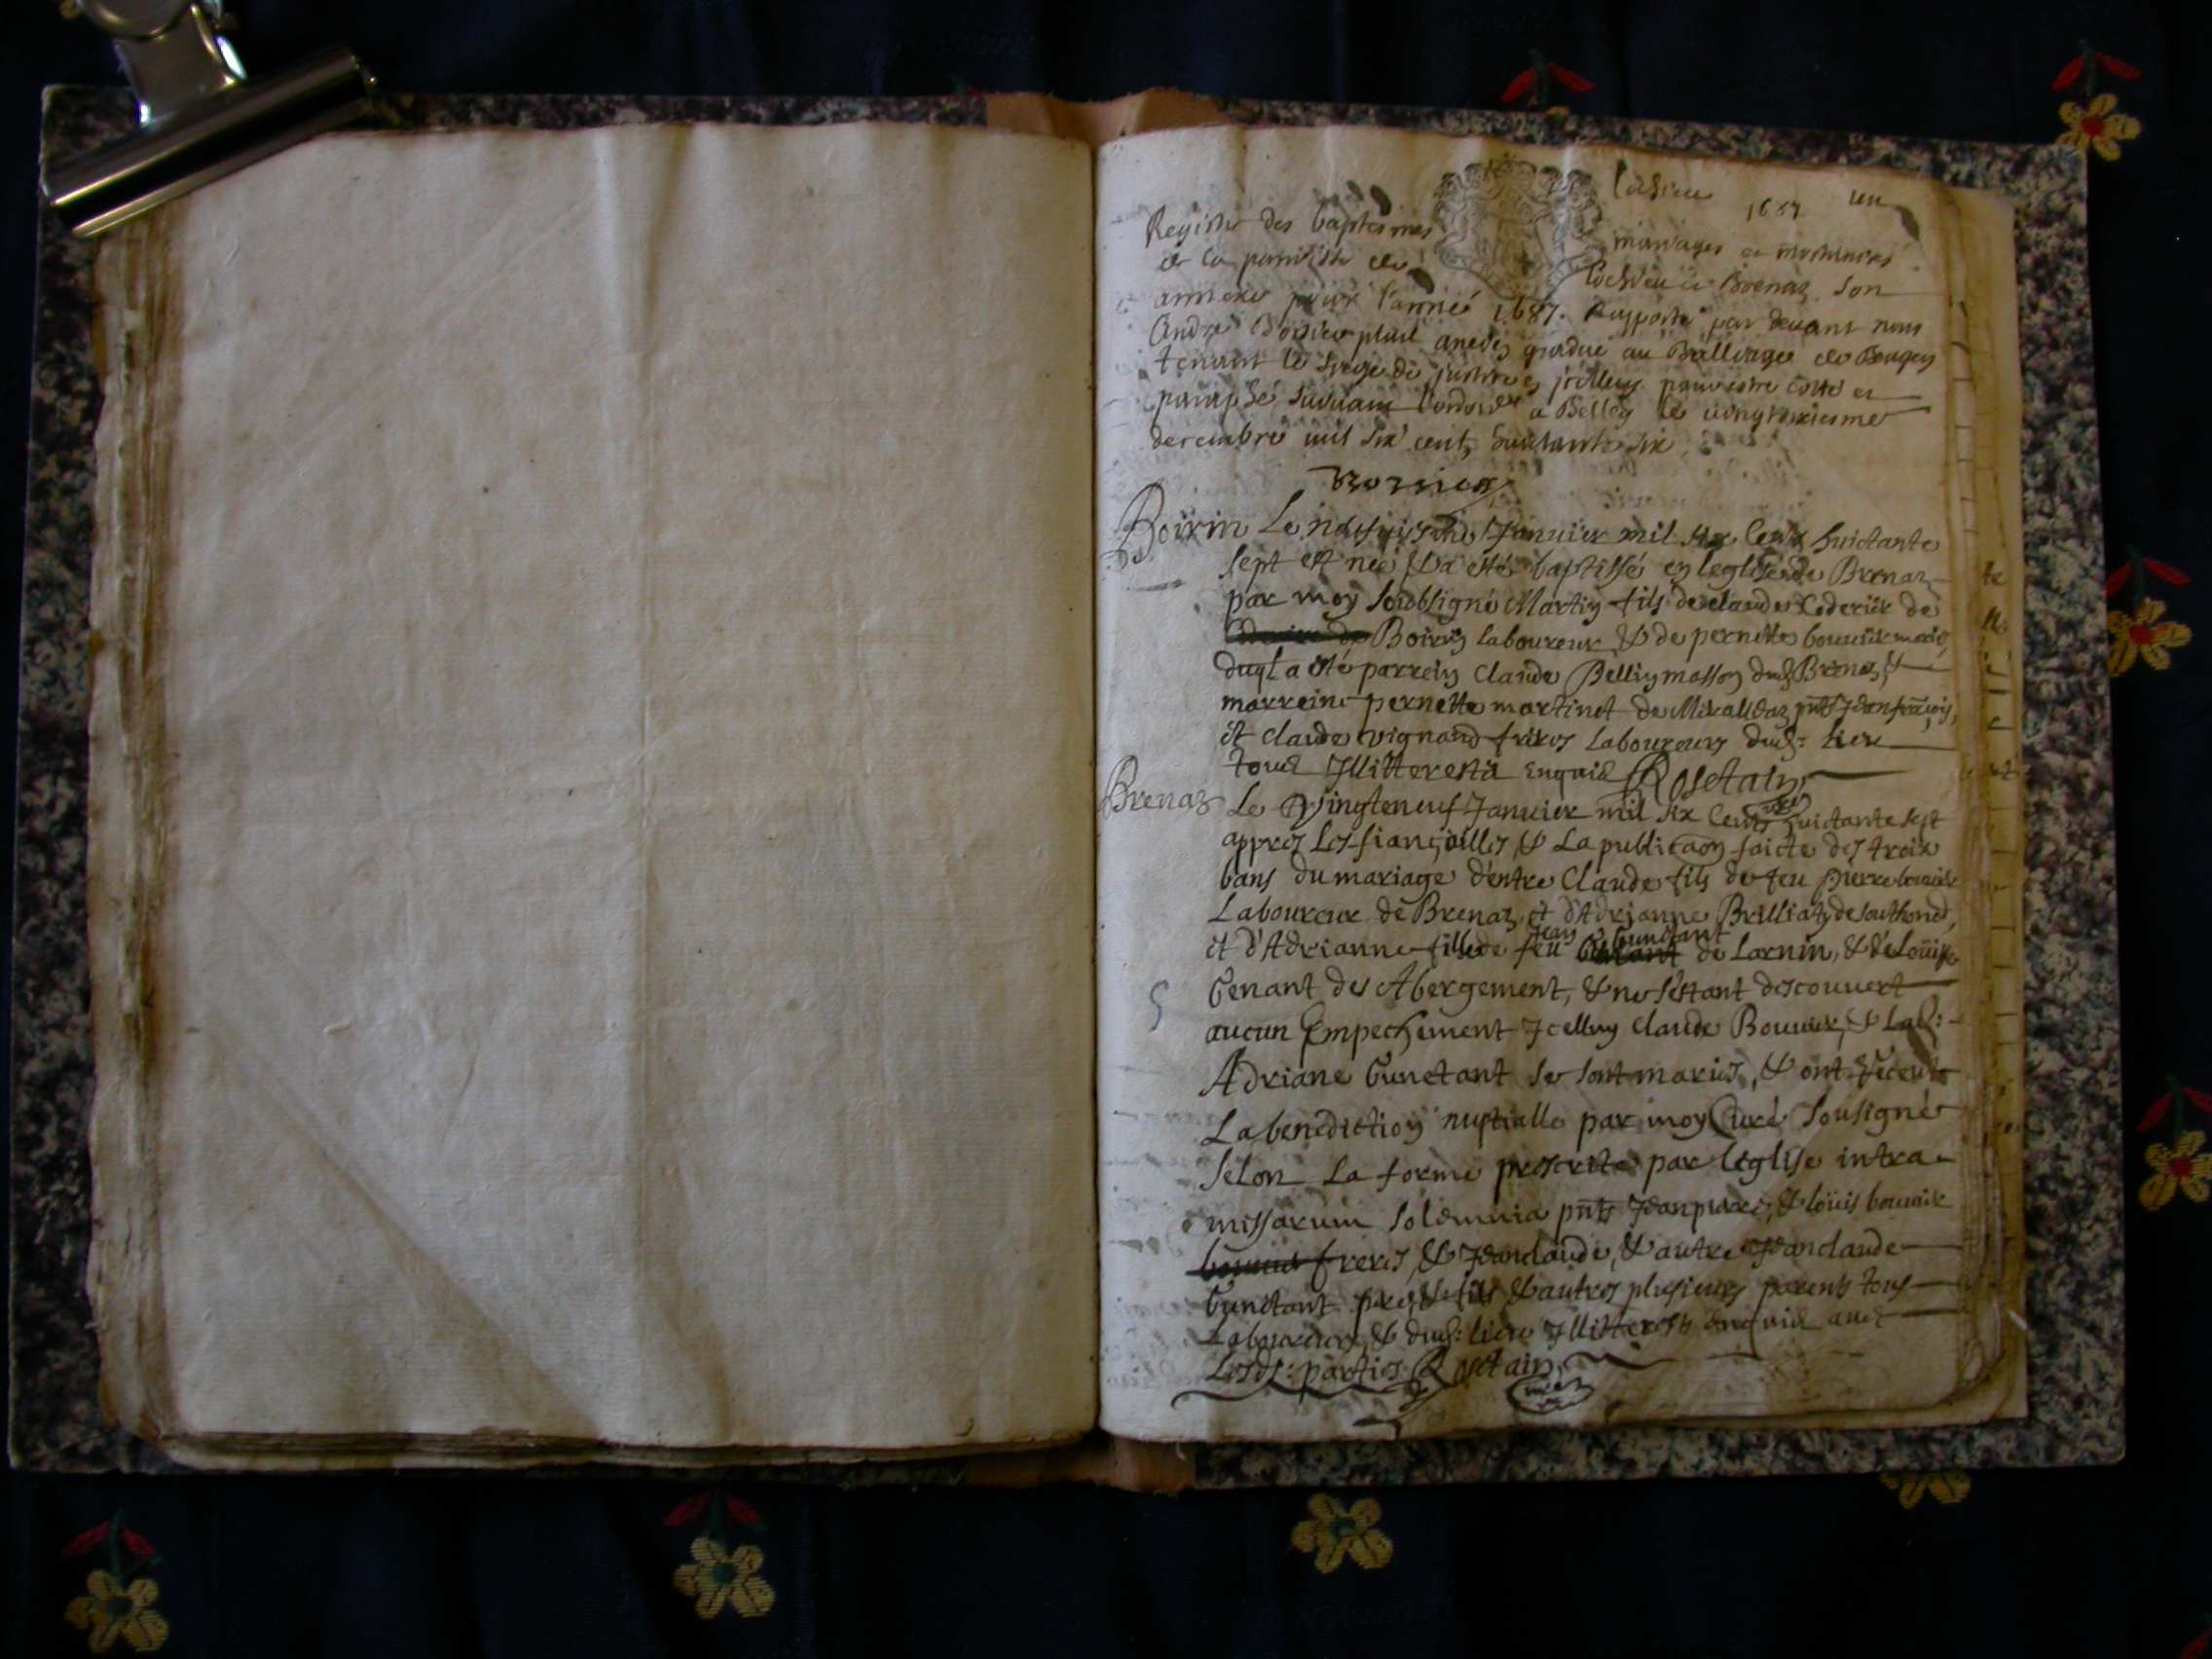 Lochieu 1687
Registre des baptesmes mariages et mortuaires
de la parroisse de Lochieu et Brenaz son
annexe pour l'année 1687. rapporté par devant nous
André plus antien gradué au Balliage de Bougey
tenant le siege de justice
paraphé suivant l'ordon.ce a Belley le
decembre mil six cents huictante six
Boirin Le Janvier mil six Cents huictante
sept est né & a esté baptissé en leglise de Brenaz
par moy soubsigné Martin fils de claude de
Boirin laboureur & de pernette bouvier mariés
duql a esté parrein Claude Bellin masson dud Brenaz &
marreine pernette martinet de pnts Jean françois
et claude vignand freres Laboureurs dud: lieu
tous Jllitteres Rosetain
Brenaz Le Vingteneuf Janvier mil six Cents huictante sept
appres Les fiançailles & La publicaon faicte des troix
bans du mariage d'entre Claude fils de feu pierre bouvier
Laboureur de Brenaz et d'Adrianne Brilliat de southonod,
et d'Adrianne fille de feu Jean Gunetant de Larnin, & de Louise
Genant des Abergement, & ne s'estant descouvert
aucun Empechement Jcelluy Claude Bouvier, & Lad:
Adriane Gunetant se sont mariés, & ont receu
La benediction nuptialle par moy Curé sousigné
selon La forme prescrite par leglise intra
missarum solemnia pnts Jean pierre, & loüis bouvier
freres, & Jeanclaude, & autre Jeanclaude
Gunetant pere, & fils & autres plusieurs parents tous
Laboureurs, & dud: lieu Jllitteres enquis avec
Lesds: parties Rosetain